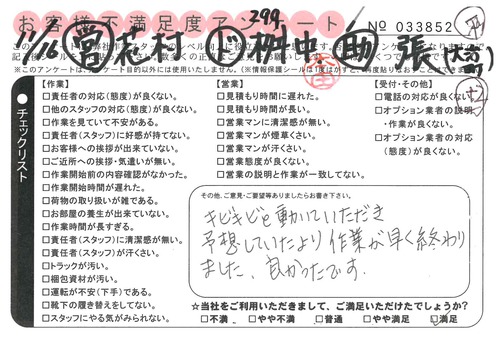 お客様不満足度アンケート
No 033852
11/16 営 花村 ド 柳中 助 張
【作業】
□責任者の対応(態度)が良くない。
□他のスタッフの対応(態度)が良くない。
□作業を見ていて不安がある。
□責任者(スタッフ)に好感が持てない。
□お客様への挨拶が出来ていない。
□ご近所への挨拶・気遣いが無い。
□作業開始前の内容確認がなかった。
□作業開始時間が遅れた。
□荷物の取り扱いが雑である。
□お部屋の養生が出来ていない。
□作業時間が長すぎる。
□責任者(スタッフ)に清潔感が無い。
□責任者(スタッフ)が汗くさい。
□トラックが汚い。
□梱包資材が汚い。
□運転が不安(下手)である。
□靴下の履き替えをしてない。
□スタッフにやる気がみられない。
【営業】
□見積もり時間に遅れた。
□見積もり時間が長い。
□営業マンに清潔感が無い。
□営業マンが煙草くさい。
□営業マンが汗くさい。
□営業態度が良くない。
□営業の説明と作業が一致してない。
【受付・その他】
□電話の対応が良くない。
□オプション業者の説明・作業が良くない。
□オプション業者の対応(態度)が良くない。
チェックリスト
その他、ご意見・ご要望等ありましたらお書き下さい。
キビキビと動いていただき
予想していたより作業が早く終わり
ました、良かったです。
☆当社をご利用いただきまして、ご満足いただけたでしょうか?
□不満 □やや不満 □普通 □やや満足 □満足